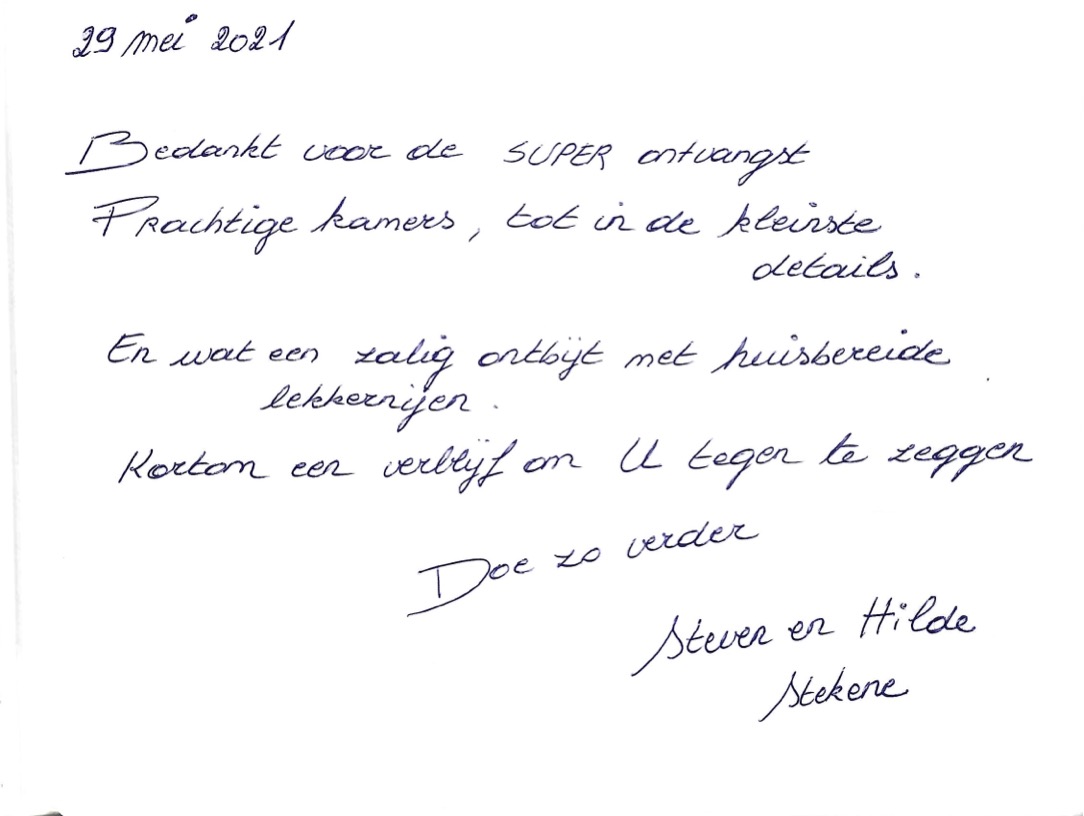 29 mei 2021
Bedankt voor de SUPER ontvangst
Prachtige kamers, tot in de kleinste
details.
En wat een zalig ontbijt met huisbereide
lekkernijen.
Kortom een verblijf om U tegen te zeggen
Doe zo verder
Steven en Hilde
Stekene